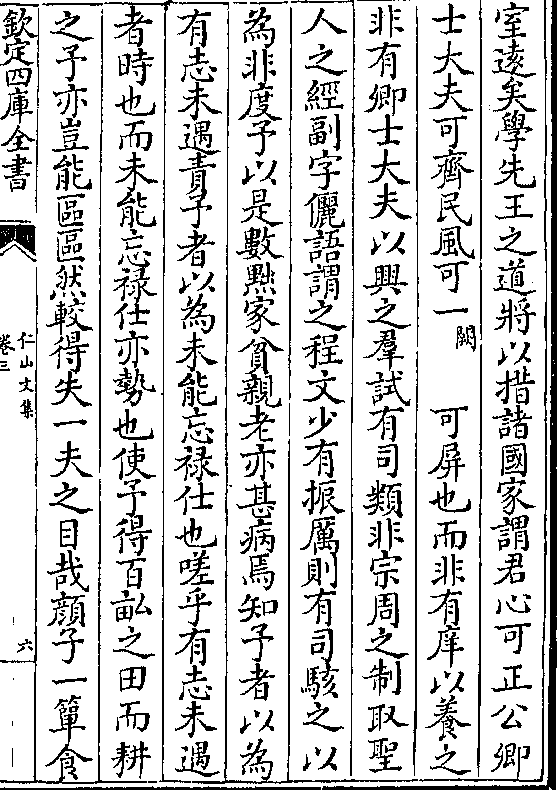 室逺矣學先王之道將以措諸國家謂君心可正公卿
士大夫可齊民風可一闕可屏也而非有庠以養之
非有卿士大夫以興之羣試有司類非宗周之制取聖
人之經副字儷語謂之程文少有振厲則有司駭之以
為非度予以是數㸃家貧親老亦甚病焉知予者以為
有志未遇責予者以為未能忘禄仕也嗟乎有志未遇
者時也而未能忘禄仕亦勢也使予得百畆之田而耕
之予亦豈能區區然較得失一夫之目哉顔子一簞食
欽定四庫全書
仁山文集
卷三
六